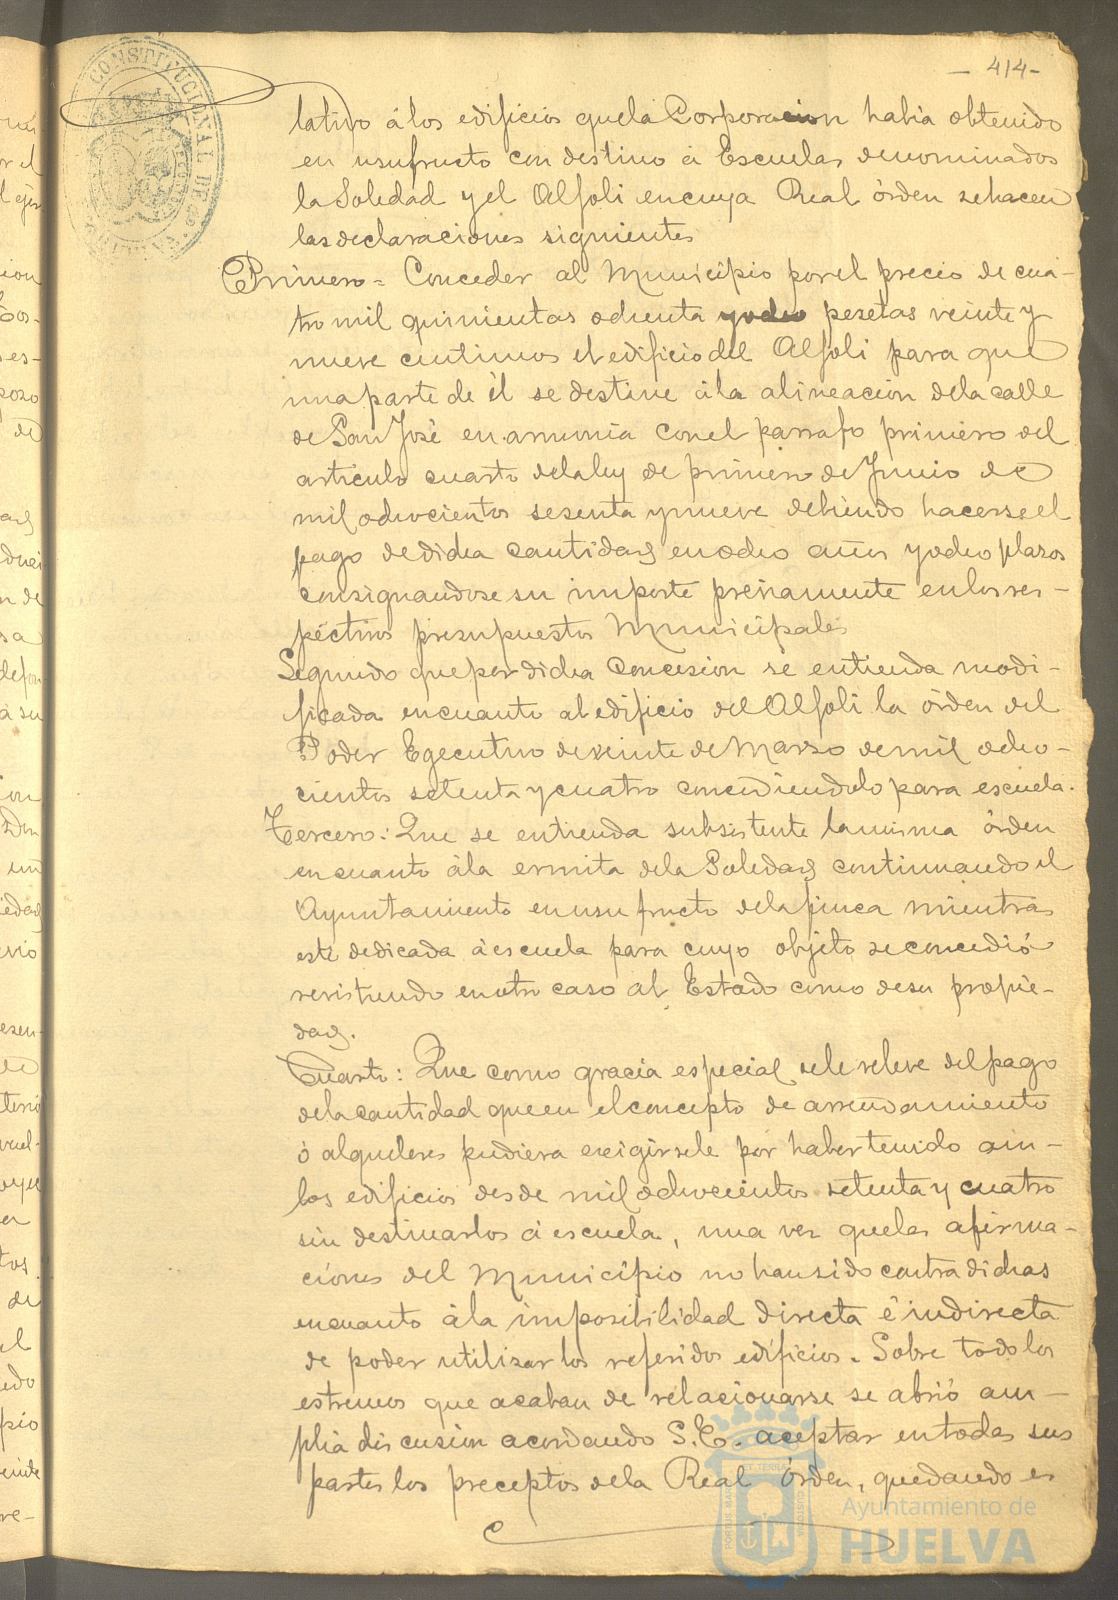 - 414 -
CONSTITUCIONAL DE
lativo á los edificios que la Corporacion habia obtenido
en usufructo con destino á Escuelas denominados
la Soledad y el Alfoli en cuya Real órden se hacen
las declaraciones siguientes
Primero = Conceder al Municipio por el precio de cua-
tro mil quinientas ochenta y ocho pesetas veinte y
nueve centimos el edificio del Alfoli para que
una parte de él se destine á la alineacion de la calle
de San José en armonia con el parrafo primero del
articulo cuarto de la ley de primero de Junio de
mil ochocientos sesenta y nueve debiendo hacerse el
pago de dicha cantidad en ocho años y ocho plazos
consignandose su importe préviamente en los res-
péctivos presupuestos Municipales
Segundo que por dicha concesion se entienda modi-
ficada en cuanto al edificio del Alfoli la órden del
Poder Egecutivo de veinte de Marzo de mil ocho-
cientos setenta y cuatro concediendolo para escuela.
Tercero: Que se entienda subsistente la misma órden
en cuanto á la ermita de la Soledad continuando el
Ayuntamiento en usufructo de la finca mientras
esté dedicada á escuela para cuyo objeto se concedió
revistiendo en otro caso al Estado como de su propie-
dad.
Cuarto: Que como gracia especial se le releve del pago
de la cantidad que en el concepto de arrendamiento
ó alquileres pudiera exigirsele por haber tenido am-
bos edificios desde mil ochocientos setenta y cuatro
sin destinarlos á escuela, una vez que las afirma-
ciones del Municipio no han sido contradichas
en cuanto á la imposibilidad directa é indirecta
de poder utilizar los referidos edificios. Sobre todo los
estremos que acaban de relacionarse se abrió am-
plia discusion acordando S.E. aceptar en todas sus
partes los preceptos de la Real órden, quedando es
Ayuntamiento de
HUELVA